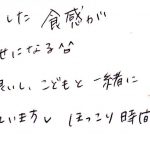 した 食感が
せになる^^
良いし、こどもと 一緒に
います♪ ほっこり時間